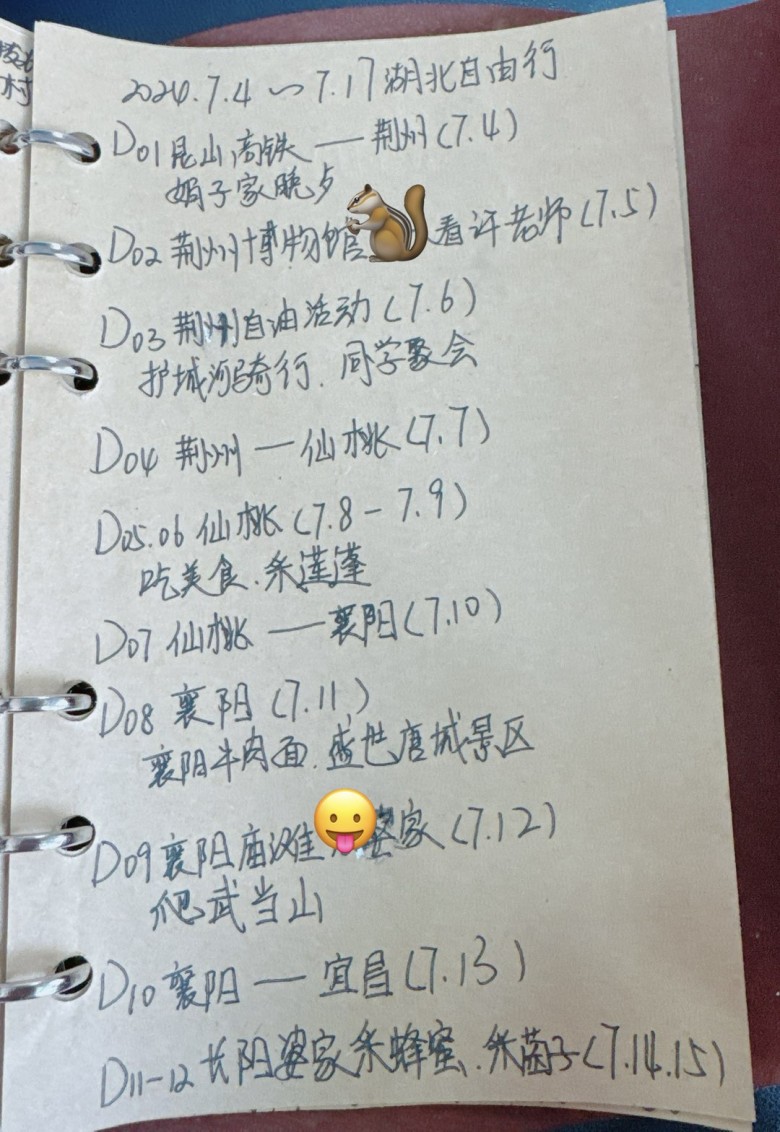 2024.7.4～7.17湖北自由行
D01昆山高铁——荆州(7.4)
娟子家晚歺
D02荆州博物馆 看许老师(7.5)
D03荆州自由活动(7.6)
护城河骑行.同学聚会
D04荆州—仙桃(7.7)
D05.06仙桃(7.8-7.9)
吃美食.采莲蓬
D07仙桃——襄阳(7.10)
D08襄阳(7.11)
襄阳牛肉面.盛世唐城景区
D09襄阳庙滩 婆家(7.12)
爬武当山
D10襄阳—宜昌(7.13)
D11-12长阳婆家采蜂蜜.采菌子(7.14.15)